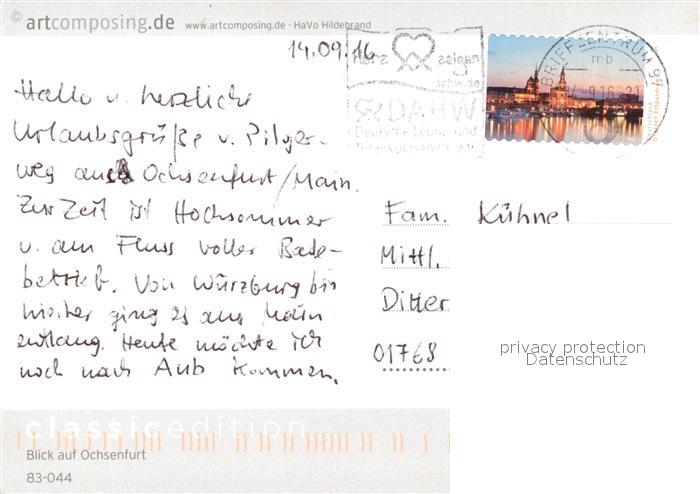 © artcomposing.de
www.artcomposing.de · HaVo Hildebrand
14.09.16
Herz zeigen
dahw.de
DAHW
Deutsche Lepra- und
BRIEFZENTRUM 97
mb
9.16-21
Hallo u. herzliche
Urlaubsgrüße v. Pilger-
weg aus Ochsenfurt/Main.
Zur Zeit ist Hochsommer
u. am Fluss voller Bade-
betrieb. Von Würzburg bis
hierher ging es am Main
entlang. Heute möchte ich
noch nach Aub kommen.
Fam. Kühnel
Mittl.
Ditter
01768
privacy protection
Datenschutz
classicedition
Blick auf Ochsenfurt
83-044